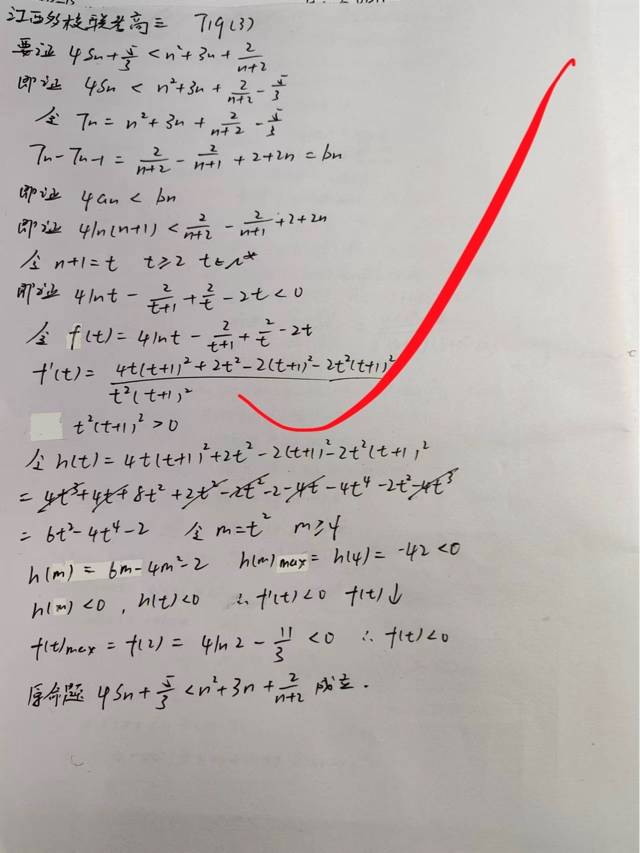 江西多校联考高三 T19(3)
要证 4Sn+5/3<n²+3n+2/(n+2)
即证 4Sn<n²+3n+2/(n+2)-5/3
令 Tn=n²+3n+2/(n+2)-5/3
Tn-Tn-1=2/(n+2)-2/(n+1)+2+2n=bn
即证 4an<bn
即证 4ln(n+1)<2/(n+2)-2/(n+1)+2+2n
令 n+1=t t≥2 t∈N*
即证 4lnt-2/(t+1)+2/t-2t<0
令 f(t)=4lnt-2/(t+1)+2/t-2t
f'(t)=(4t(t+1)²+2t²-2(t+1)²-2t²(t+1)²)/(t²(t+1)²)
t²(t+1)²>0
令 h(t)=4t(t+1)²+2t²-2(t+1)²-2t²(t+1)²
=4t³+4t+8t²+2t²-2t²-2-4t-4t⁴-2t²-4t³
=6t²-4t⁴-2 令 m=t² m≥4
h(m)=6m-4m²-2 h(m)max=h(4)=-42<0
h(m)<0,h(t)<0 ∴f'(t)<0 f(t)↓
f(t)max=f(2)=4ln2-11/3<0 ∴f(t)<0
原命题 4Sn+5/3<n²+3n+2/(n+2) 成立.